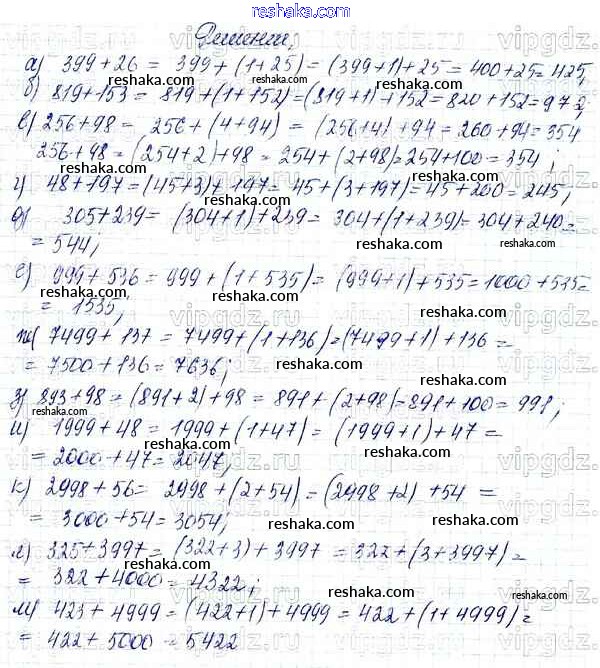 reshaka.com
Решение,
а) 399+26 = 399+(1+25)=(399+1)+25=400+25=425,
reshaka.com
б) 819+153 = 819+(1+152)=(819+1)+152=820+152=972;
reshaka.com
в) 256+98 = 256+(4+94) = (256+4)+94=260+94=354
256+98=(254+2)+98=254+(2+98)=254+100=354;
reshaka.com
г) 48+197=(45+3)+197=45+(3+197)=45+200=245,
reshaka.com
д) 305+239= (304+1)+239=304+(1+239)=304+240=
= 544;
reshaka.com
е) 999+536 = 999+(1+535)= (999+1)+535=1000+535=
reshaka.com
= 1535,
ж) 7499+137 = 7499+(1+136)=(7499+1)+136 =
= 7500+136=7636;
reshaka.com
з) 893+98=(891+2)+98=891+(2+98)=891+100=991;
reshaka.com
и) 1999+48= 1999+(1+47)= (1999+1)+47=
= 2000+47=2047,
reshaka.com
к) 2998+56= 2998+(2+54)=(2998+2)+54 =
= 3000+54=3054;
reshaka.com
л) 325+3997=(322+3)+3997=322+(3+3997)=
= 322+4000=4322;
reshaka.com
м) 423+4999=(422+1)+4999=422+(1+4999)=
= 422+5000=5422
reshaka.com